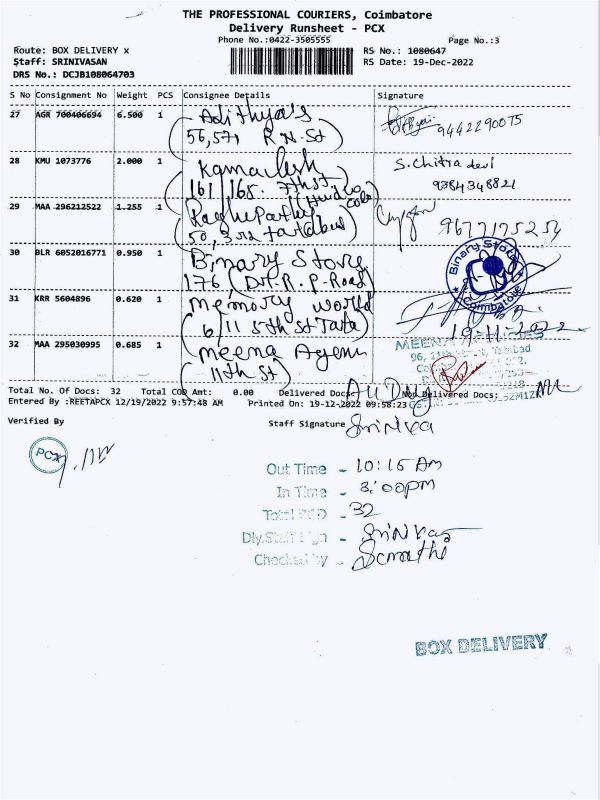 THE PROFESSIONAL COURIERS, Coimbatore
Delivery Runsheet - PCX
Phone No.:0422-3505555
Page No.:3
Route: BOX DELIVERY x
RS No.: 1080647
Staff: SRINIVASAN
RS Date: 19-Dec-2022
DRS No.: DCJB108064703
S No Consignment No Weight PCS Consignee Details Signature
27 AGR 700406694 6.500 1 Adithya's
56,57, R.N.St 9442290075
28 KMU 1073776 2.000 1 Kamalesh S.Chitra devi
161/165. 7th St 9384348821
29 MAA 296212522 1.255 1
50, 3rd tatabad 9677175254
30 BLR 6052016771 0.950 1 Binary Store Binary Store
176 (Dr. R. P. Road) Coimbatore
31 KRR 5604896 0.620 1 memory world
6/11 5th St Tata 19-11-2022
32 MAA 295030995 0.685 1 meena Agen MEENA
11th St 96,
Total No. Of Docs: 32 Total COD Amt: 0.00 Delivered Docs: Non Delivered Docs:
Entered By :REETAPCX 12/19/2022 9:57:48 AM Printed On: 19-12-2022 09:58:23
Verified By Staff Signature
PCX
Out Time - 10:15 Am
In Time - 3:00pm
Total POD - 32
Dly.Staff Sign -
Checked by -
BOX DELIVERY